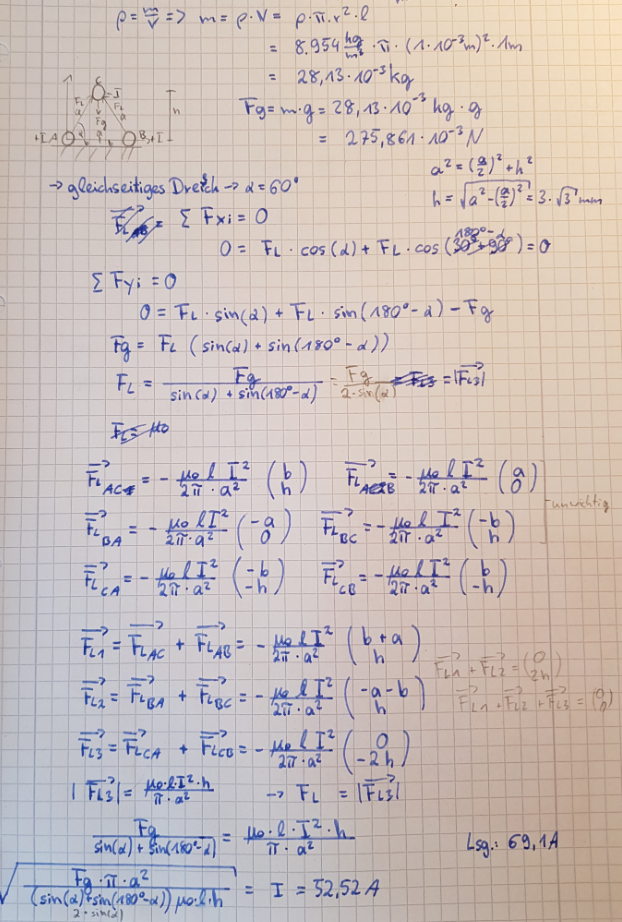 ρ = m/V => m = ρ · V = ρ · π · r² · l
= 8.954 kg/m³ · π · (1 · 10⁻³m)² · 1m
= 28,13 · 10⁻³ kg
Fg = m · g = 28,13 · 10⁻³ kg · g
= 275,861 · 10⁻³ N
C
-I
FL FL
a a
Fg
h
+I A B +I
a² = (a/2)² + h²
h = √(a² - (a/2)²) = 3 · √3 mm
→ gleichseitiges Dreieck → α = 60°
Σ Fxi = 0
0 = FL · cos(α) + FL · cos(180° - α) = 0
Σ Fyi = 0
0 = FL · sin(α) + FL · sin(180° - α) - Fg
Fg = FL (sin(α) + sin(180° - α))
FL = Fg / (sin(α) + sin(180° - α)) = Fg / (2 · sin(α)) = |FL3|
FL = μ0
FL AC = - μ0 l I² / (2π · a²) (b h) FL AB = - μ0 l I² / (2π · a²) (a 0)
FL BA = - μ0 l I² / (2π · a²) (-a 0) FL BC = - μ0 l I² / (2π · a²) (-b h)
unwichtig
FL CA = - μ0 l I² / (2π · a²) (-b -h) FL CB = - μ0 l I² / (2π · a²) (b -h)
FL1 = FL AC + FL AB = - μ0 l I² / (2π · a²) (b + a h)
FL1 + FL2 = (0 2h)
FL2 = FL BA + FL BC = - μ0 l I² / (2π · a²) (-a - b h)
FL1 + FL2 + FL3 = (0 0)
FL3 = FL CA + FL CB = - μ0 l I² / (2π · a²) (0 -2h)
|FL3| = μ0 · l · I² · h / (π · a²) → FL = |FL3|
Fg / (sin(α) + sin(180° - α)) = μ0 · l · I² · h / (π · a²)
Lsg.: 69,1A
√(Fg · π · a² / ((sin(α) + sin(180° - α)) μ0 · l · h)) = I = 52,52 A
2 · sin(α)